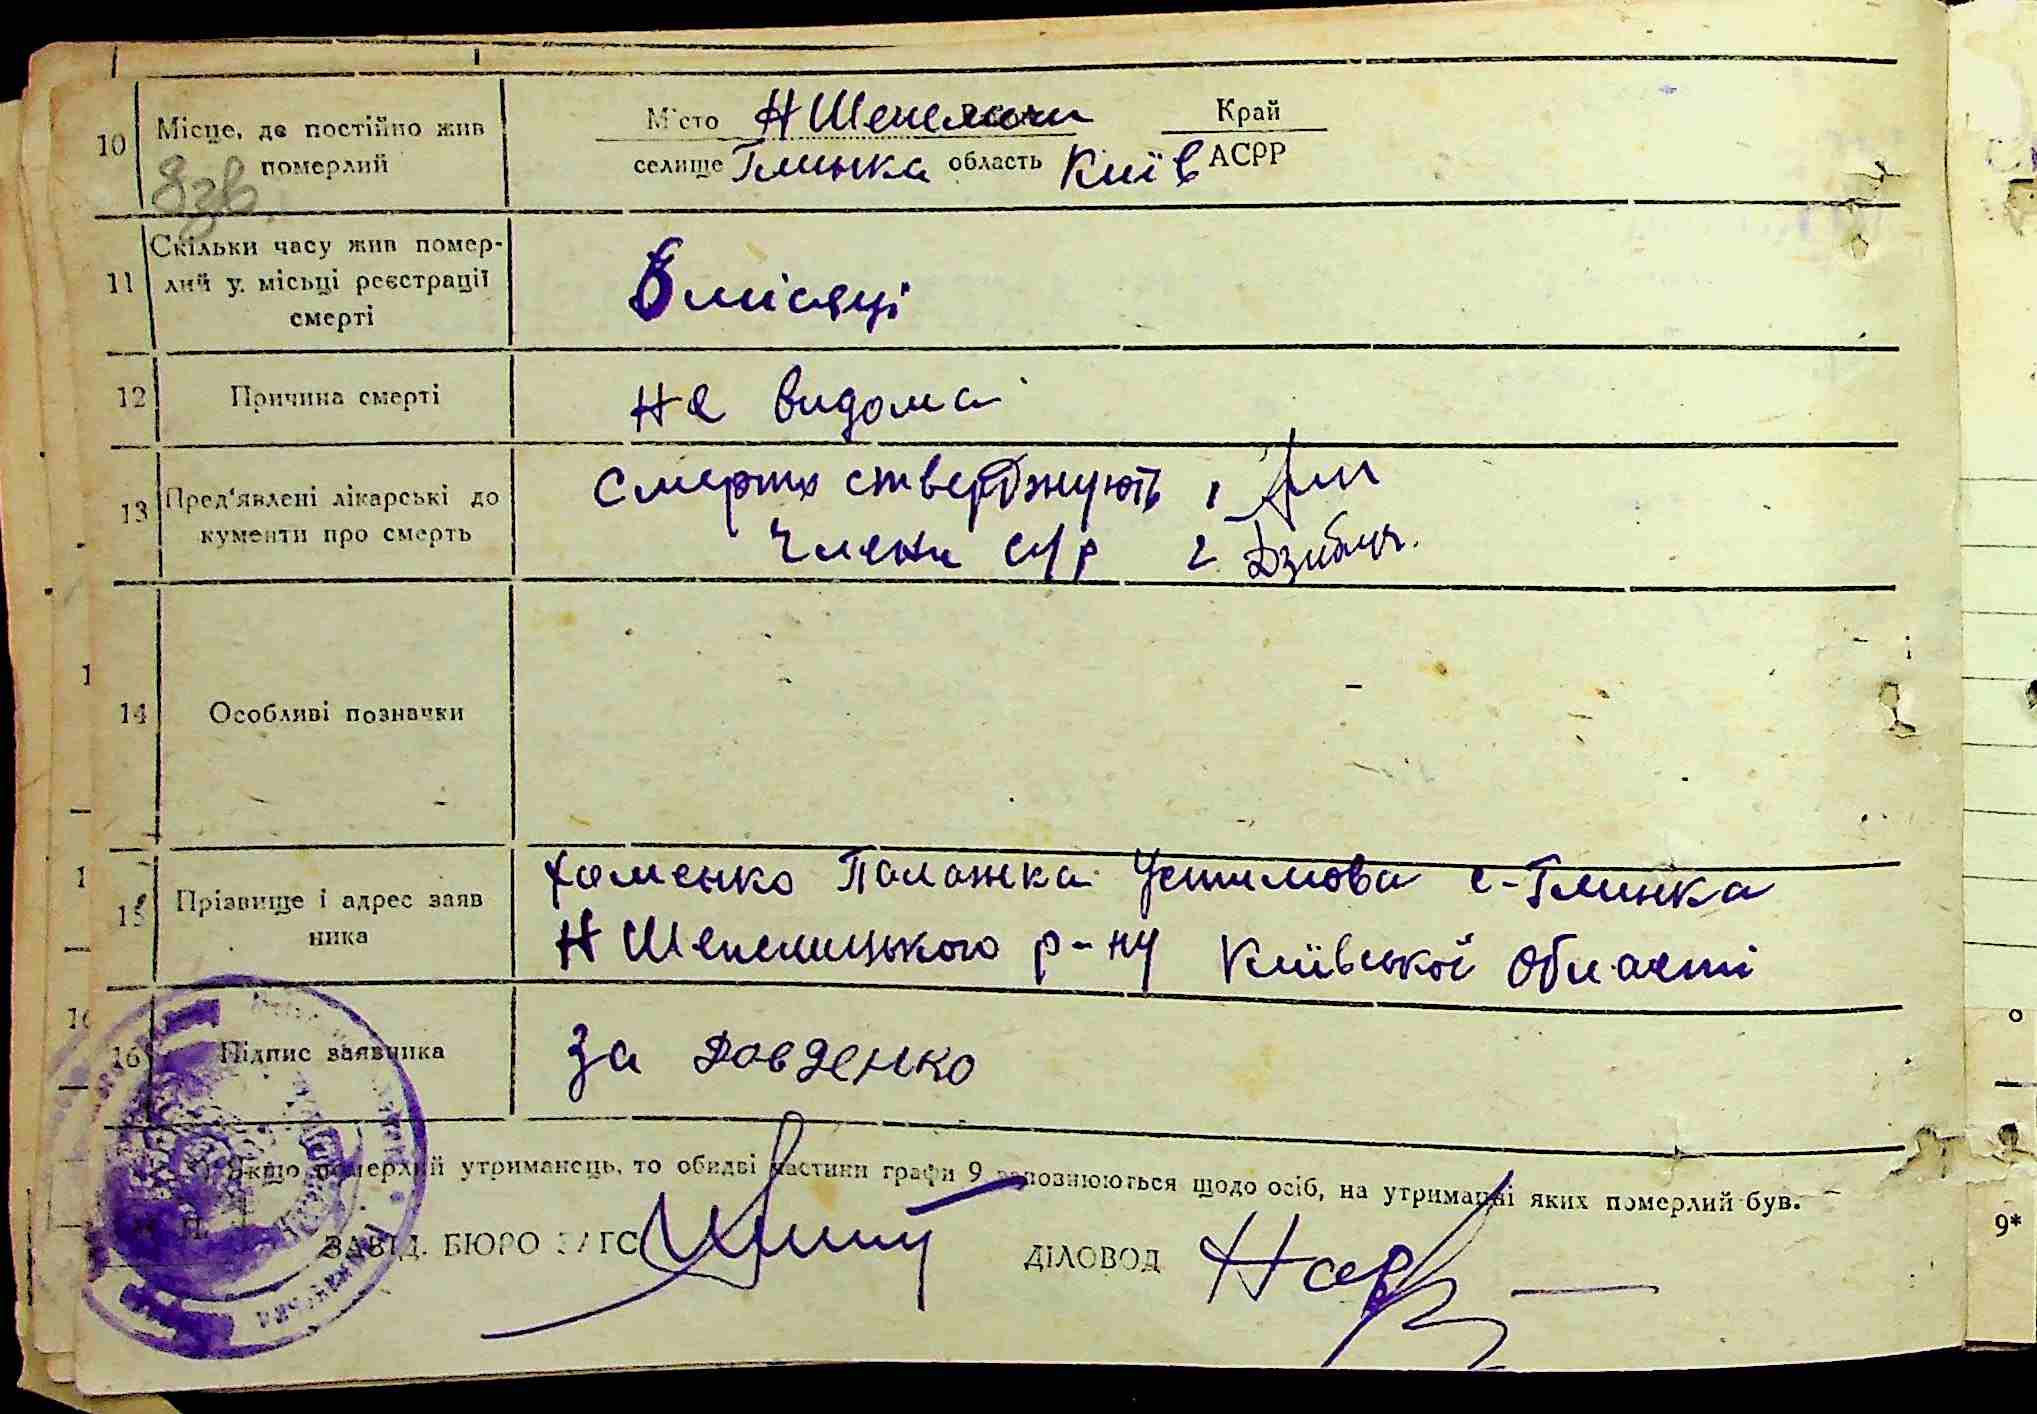 10 Місце, де постійно жив померлий
Місто Н Шепеличи Край
селище Глинка область Київ АСРР
11 Скільки часу жив помер-
лий у місьці реєстрації
смерті
8 місяці
12 Причина смерті не видома
13 Пред'явлені лікарські до
кументи про смерть
Смерть стверджують 1
члени с/р 2
14 Особливі позначки
15 Прізвище і адрес заяв
ника
Хоменко Палажка Устимова с-Глинка
Н Шепелицького р-ну Київської області
16 Підпис заявника за Довденко
Якщо померлий утриманець, то обидві частини графи 9 заповнюються щодо осіб, на утриманні яких померлий був.
М. П.
ЗАВІД. БЮРО ЗАГС ДІЛОВОД
9*